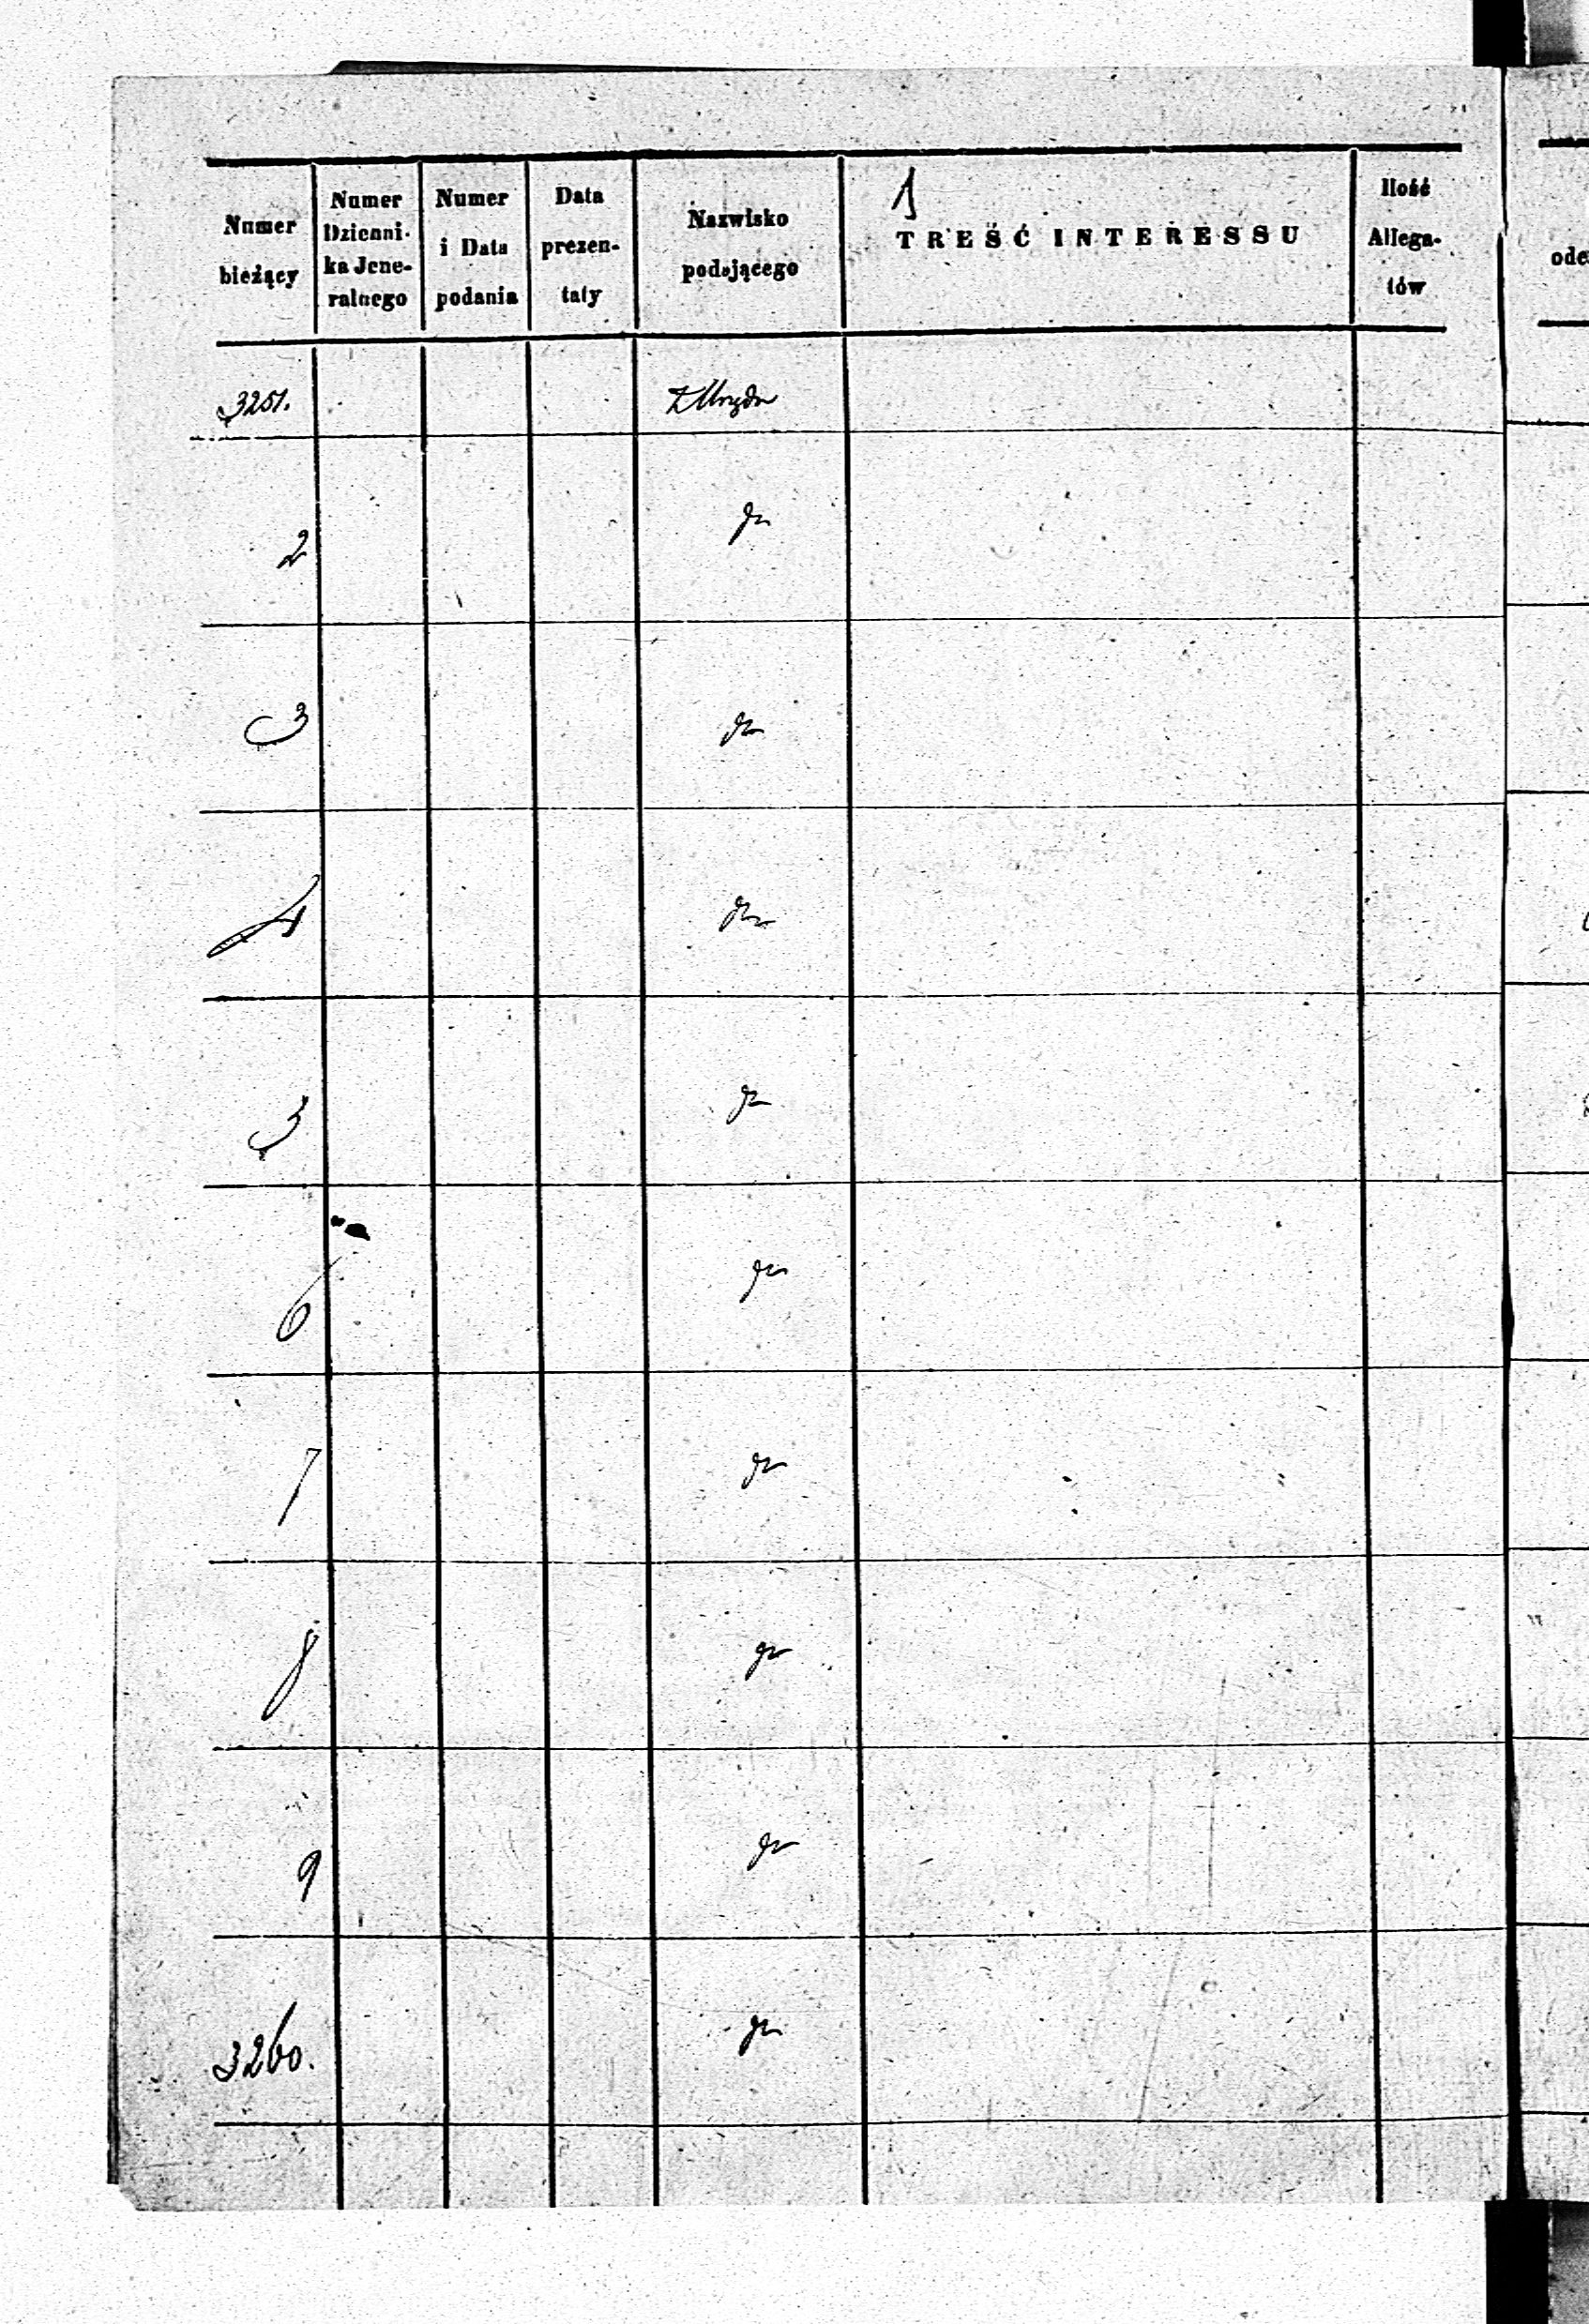 Numer bieżący | Numer Dzienni-ka Jene-ralnego | Numer i Data podania | Data prezen-taty | Nazwisko podającego | 1 TREŚĆ INTERESSU | Ilość Allega-tów
3251. | Z Urzędu
2 | dto
3 | dto
4 | dto
5 | dto
6 | dto
7 | dto
8 | dto
9 | dto
3260. | dto